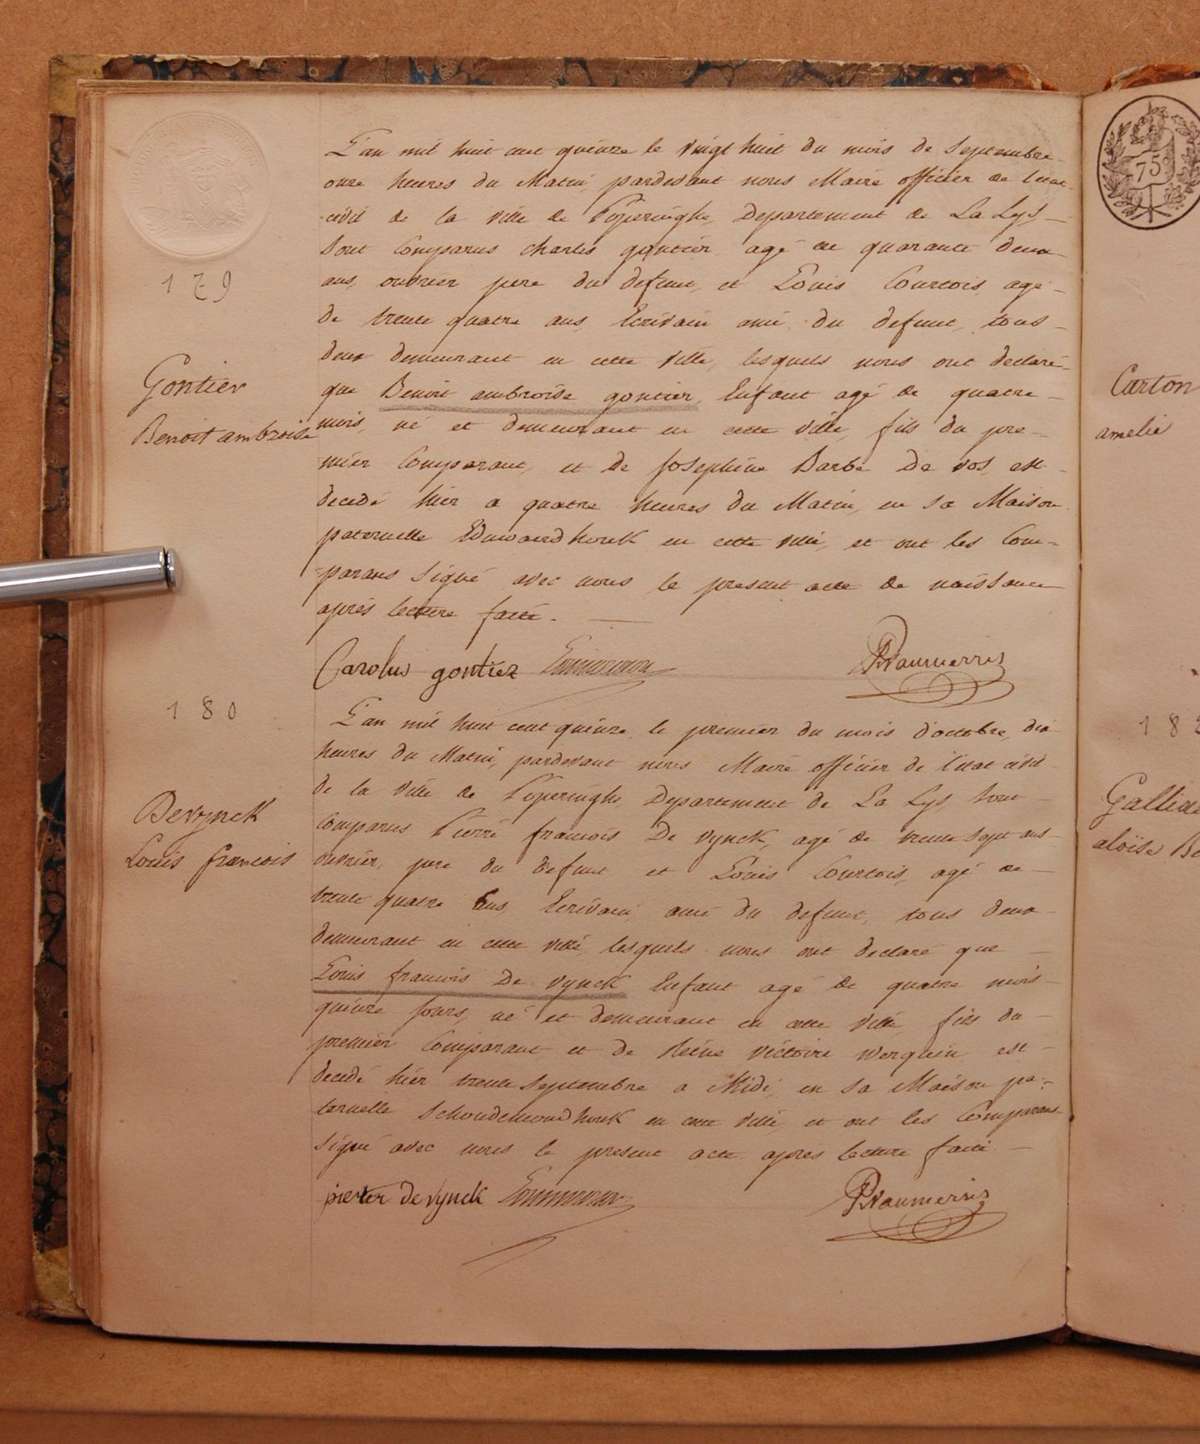 179
Gontier
Benoit ambroise
L'an mil huit cent quinze le vingt huit du mois de Septembre
onze heures du Matin, pardevant nous Maire officier de l'etat
civil de la ville de Poperinghe, Departement de La Lys
Sont Comparus Charles gontier agé de quarante deux
ans, ouvrier pere du defunt, et Louis Courtois, agé
de trente quatre ans, Ecrivain ami du defunt, tous
deux demeurant en cette ville, lesquels nous ont declaré
que Benoit ambroise gontier, Enfant agé de quatre
mois, né et demeurant en cette ville, fils du pre-
mier Comparant, et de Josephine Barbe De vos, est
decedé hier a quatre heures du Matin, en sa Maison
paternelle Eduwaerdhouk en cette ville, et ont les Com-
parans Signé avec nous le present acte de naissance
après lecture faite.
Carolus gontier
180
Devynck
Louis francois
L'an mil huit cent quinze, le premier du mois d'octobre, dix
heures du Matin, pardevant nous Maire officier de l'etat civil
de la ville de Poperinghe Departement de La Lys Sont
Comparus Pierre francois De vynck, agé de trente sept ans
ouvrier, pere du defunt et Louis Courtois, agé de
trente quatre ans, Ecrivain ami du defunt, tous deux
demeurant en cette ville, lesquels nous ont declaré que
Louis francois De vynck Enfant agé de quatre mois
quinze jours, né et demeurant en cette ville fils du
premier Comparant et de Reine Victoire werquin est
decedé hier trente septembre a Midi, en sa Maison pa-
ternelle Schoudemondhouk en cette ville et ont les Comparans
Signé avec nous le present acte après lecture faite
pieter de vynck
75
Carton
amelie
aloïse